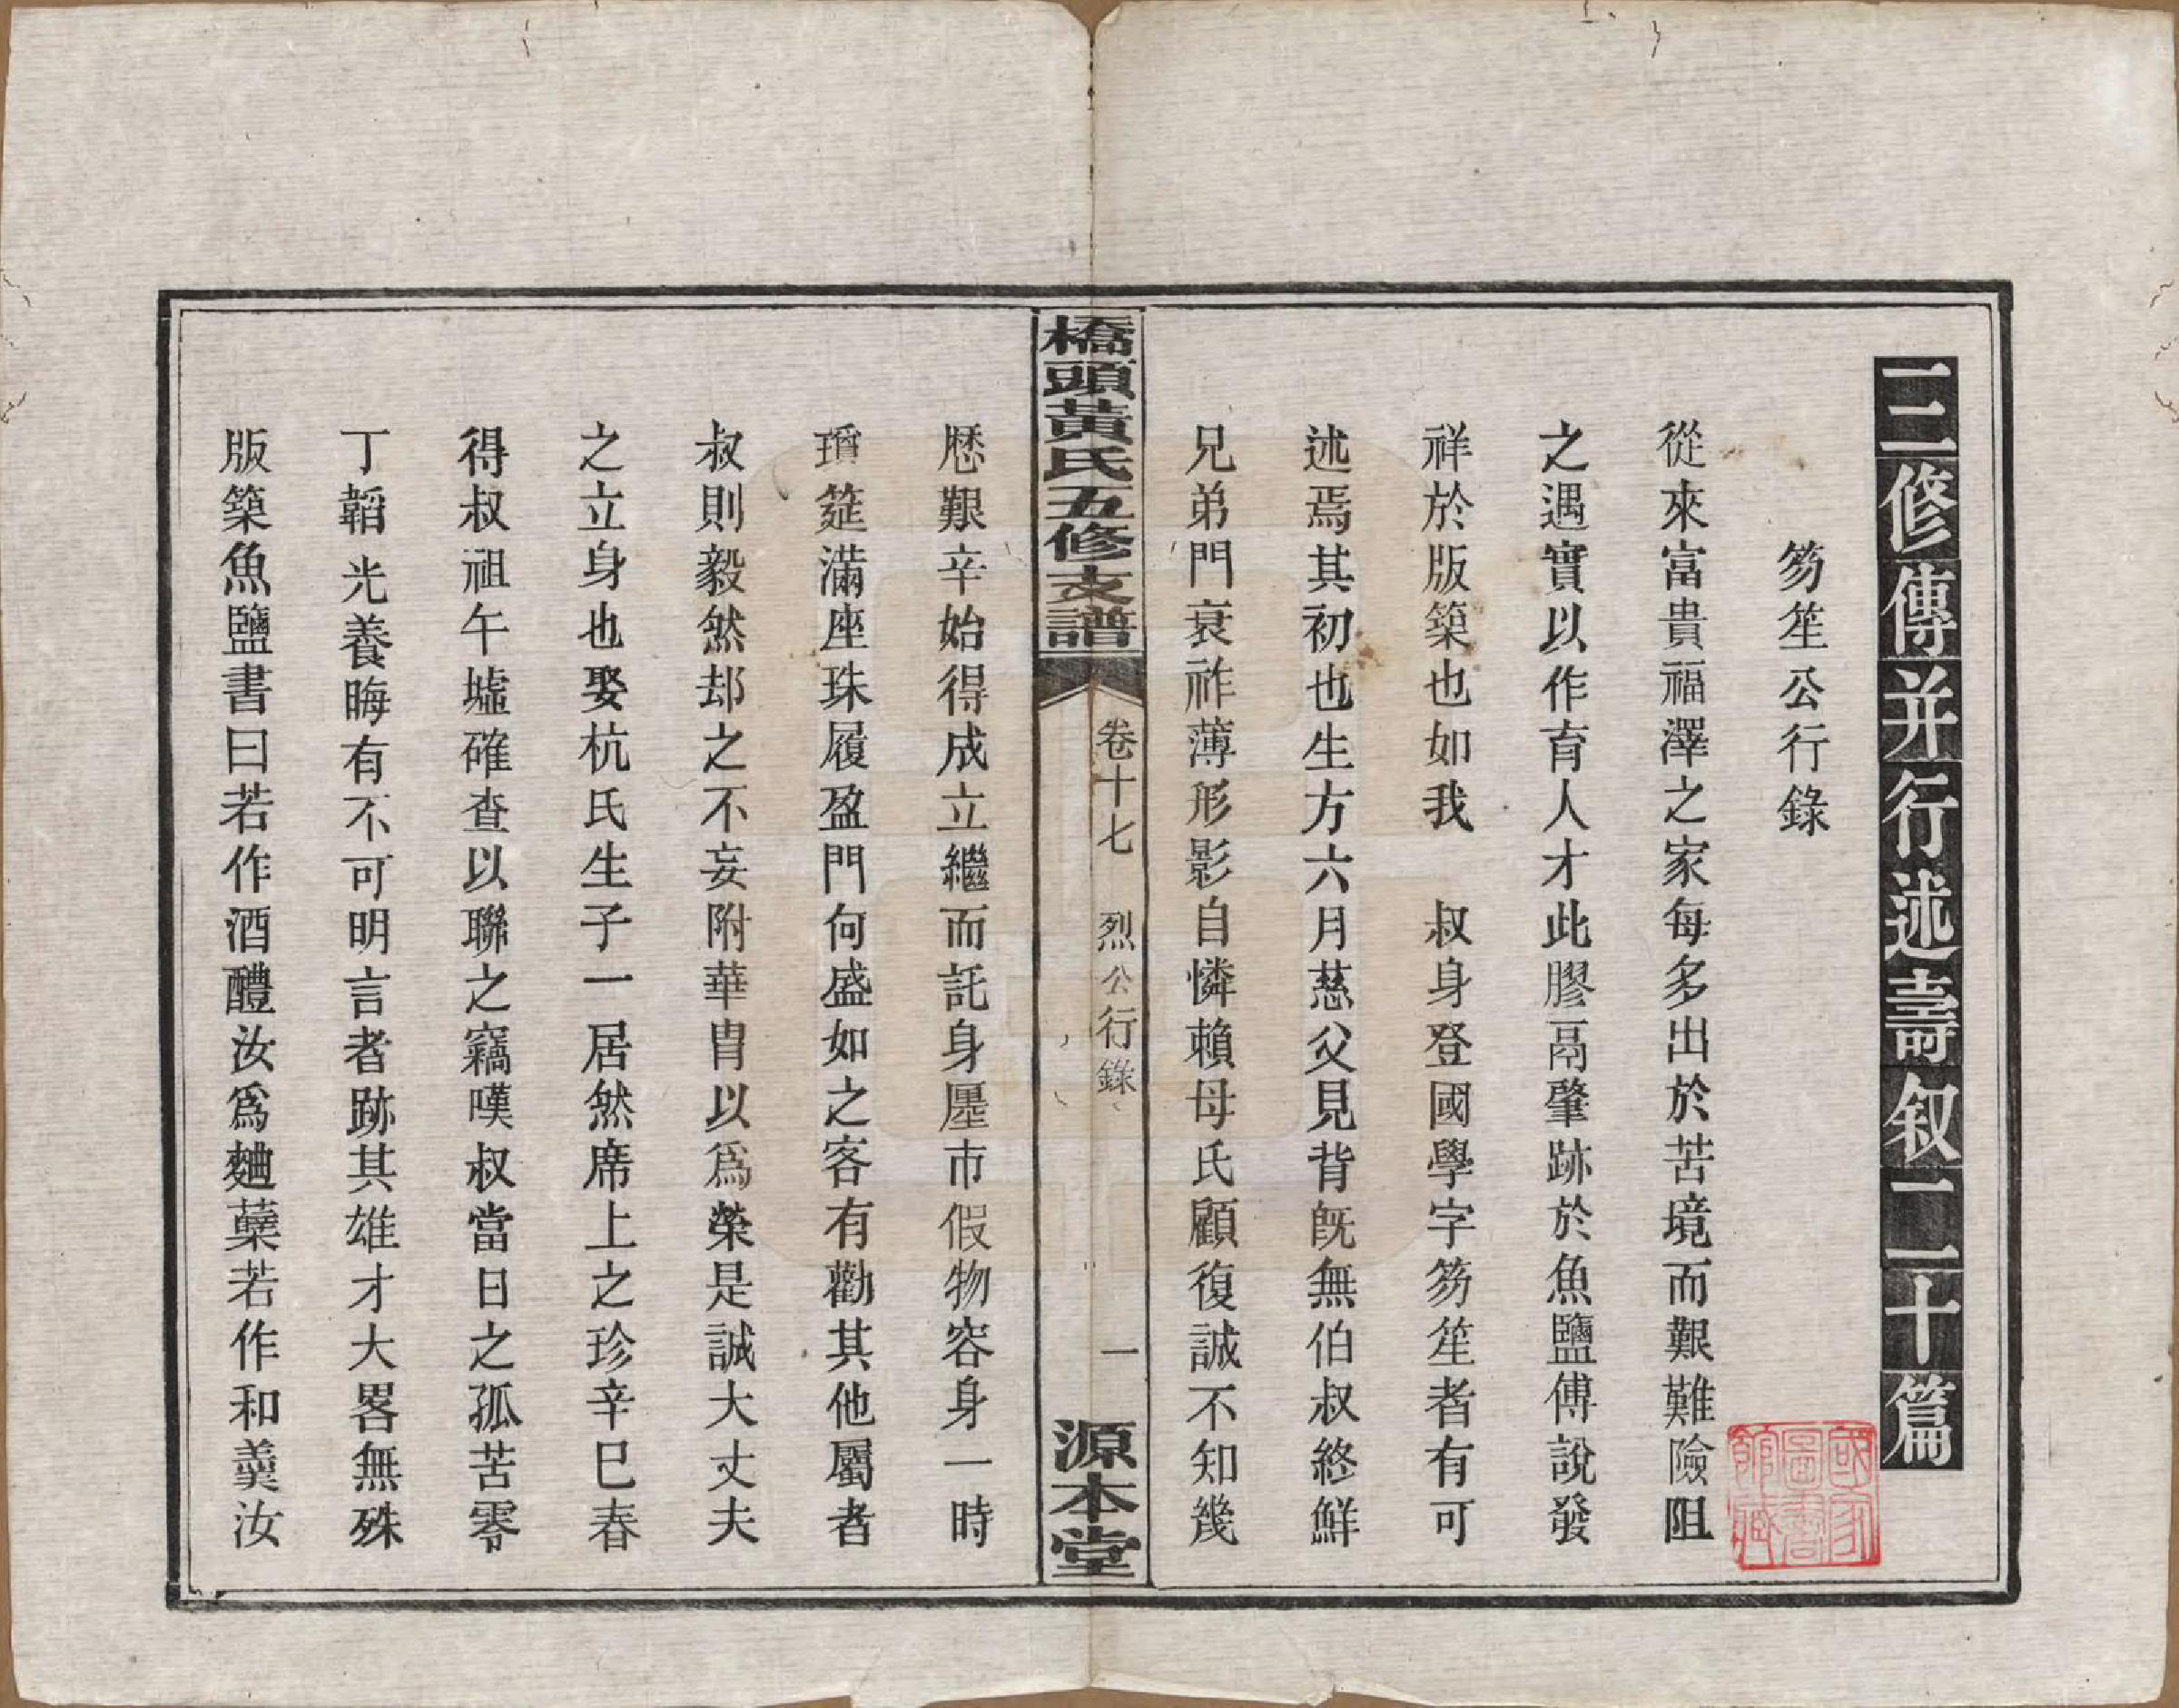 三修傳并行述壽敘二十篇
笏笙公行錄
從來富貴福澤之家每多出於苦境而艱難險阻
之遇實以作育人才此膠鬲肇跡於魚鹽傅說發
祥於版築也如我　叔身登國學字笏笙者有可
述焉其初也生方六月慈父見背旣無伯叔終鮮
兄弟門衰祚薄形影自憐賴母氏顧復誠不知幾
橋頭黃氏五修支譜
卷十七　烈公行錄　一
源本堂
歷艱辛始得成立繼而託身廛市假物容身一時
瓊筵滿座珠履盈門何盛如之客有勸其他屬者
叔則毅然却之不妄附華胄以爲榮是誠大丈夫
之立身也娶杭氏生子一居然席上之珍辛巳春
得叔祖午墟確查以聯之竊嘆叔當日之孤苦零
丁韜光養晦有不可明言者跡其雄才大畧無殊
版築魚鹽書曰若作酒醴汝爲麯櫱若作和羹汝
國家圖書館藏